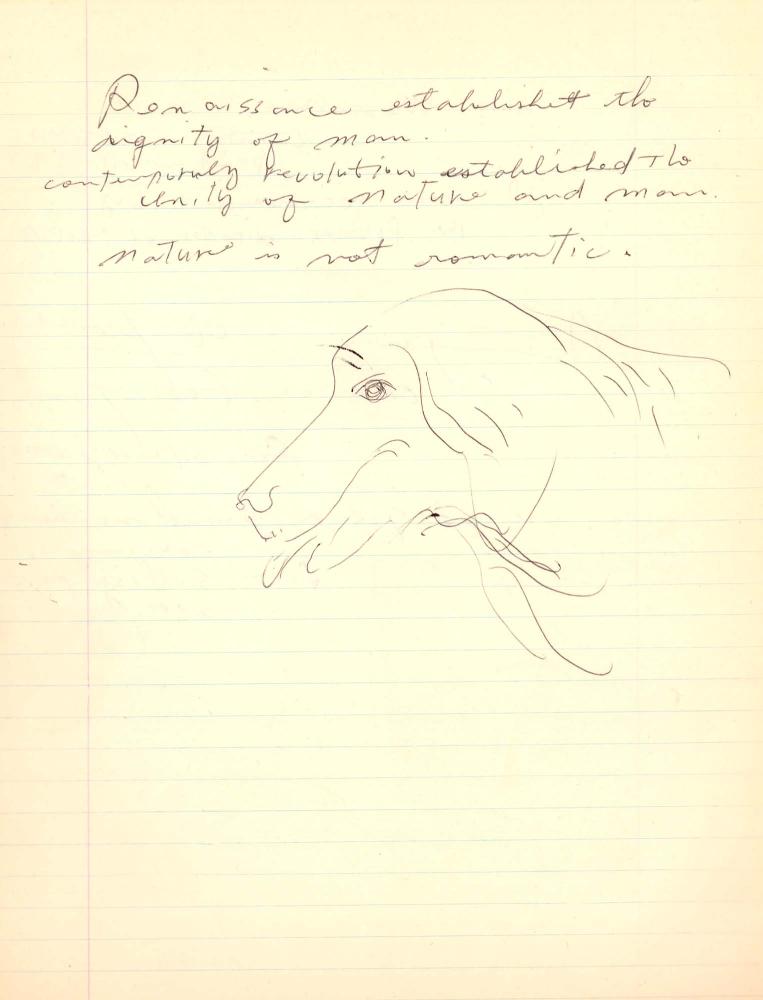 Renaissance established the
dignity of man.
contemporary revolution established the
unity of nature and man.
nature is not romantic.